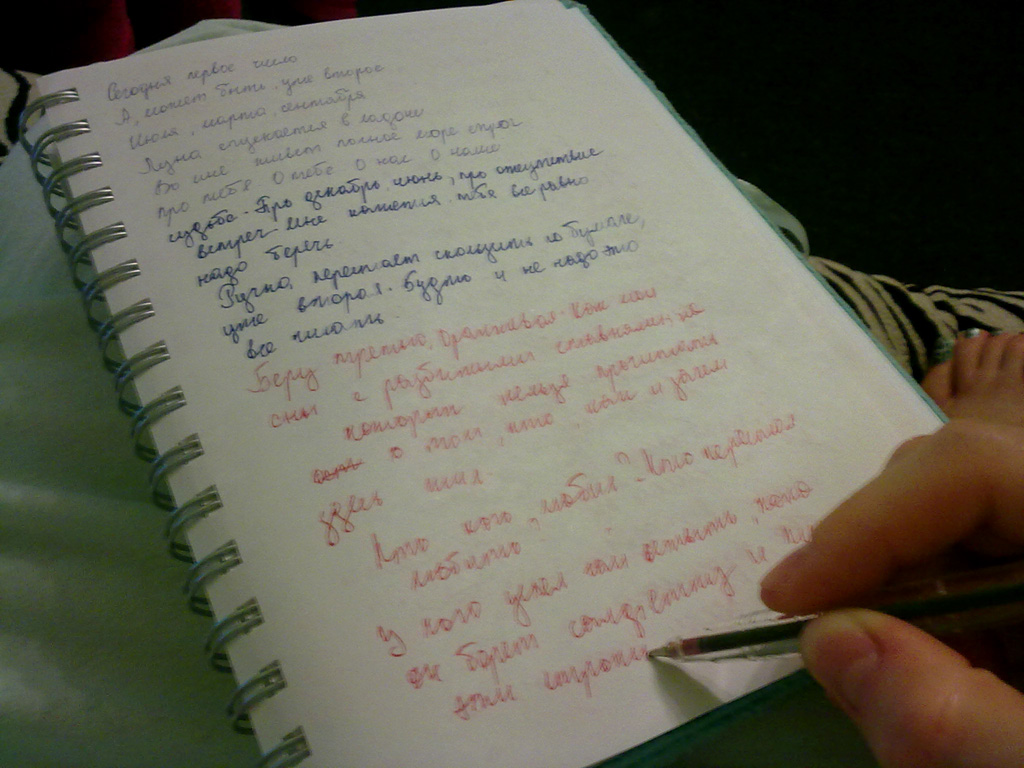 Сегодня первое число
А, может быть, уже второе
Июля, марта, сентября
Луна спускается в ладони
Во мне живет полное море строк
про тебя О тебе О нас О наше
судьбе. Про декабрь, июнь, про отсутствие
встреч Мне кажется тебя все равно
надо беречь
Ручка, перестает скользить по бумаге,
уже вторая. Будто и не надо это
все писать.
Беру третью, оранжевая. Как мои
сны с разбитыми ставнями, на
которых нельзя прочитать
о том, кто, как и зачем
здесь жил.
Кто кого, любил? Кто перестал
любить?
У кого успел чай остыть, пока
он варит сгущенку и
эти строки